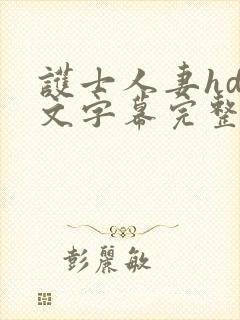 護士人妻hd
文字幕完整
彭麗敏